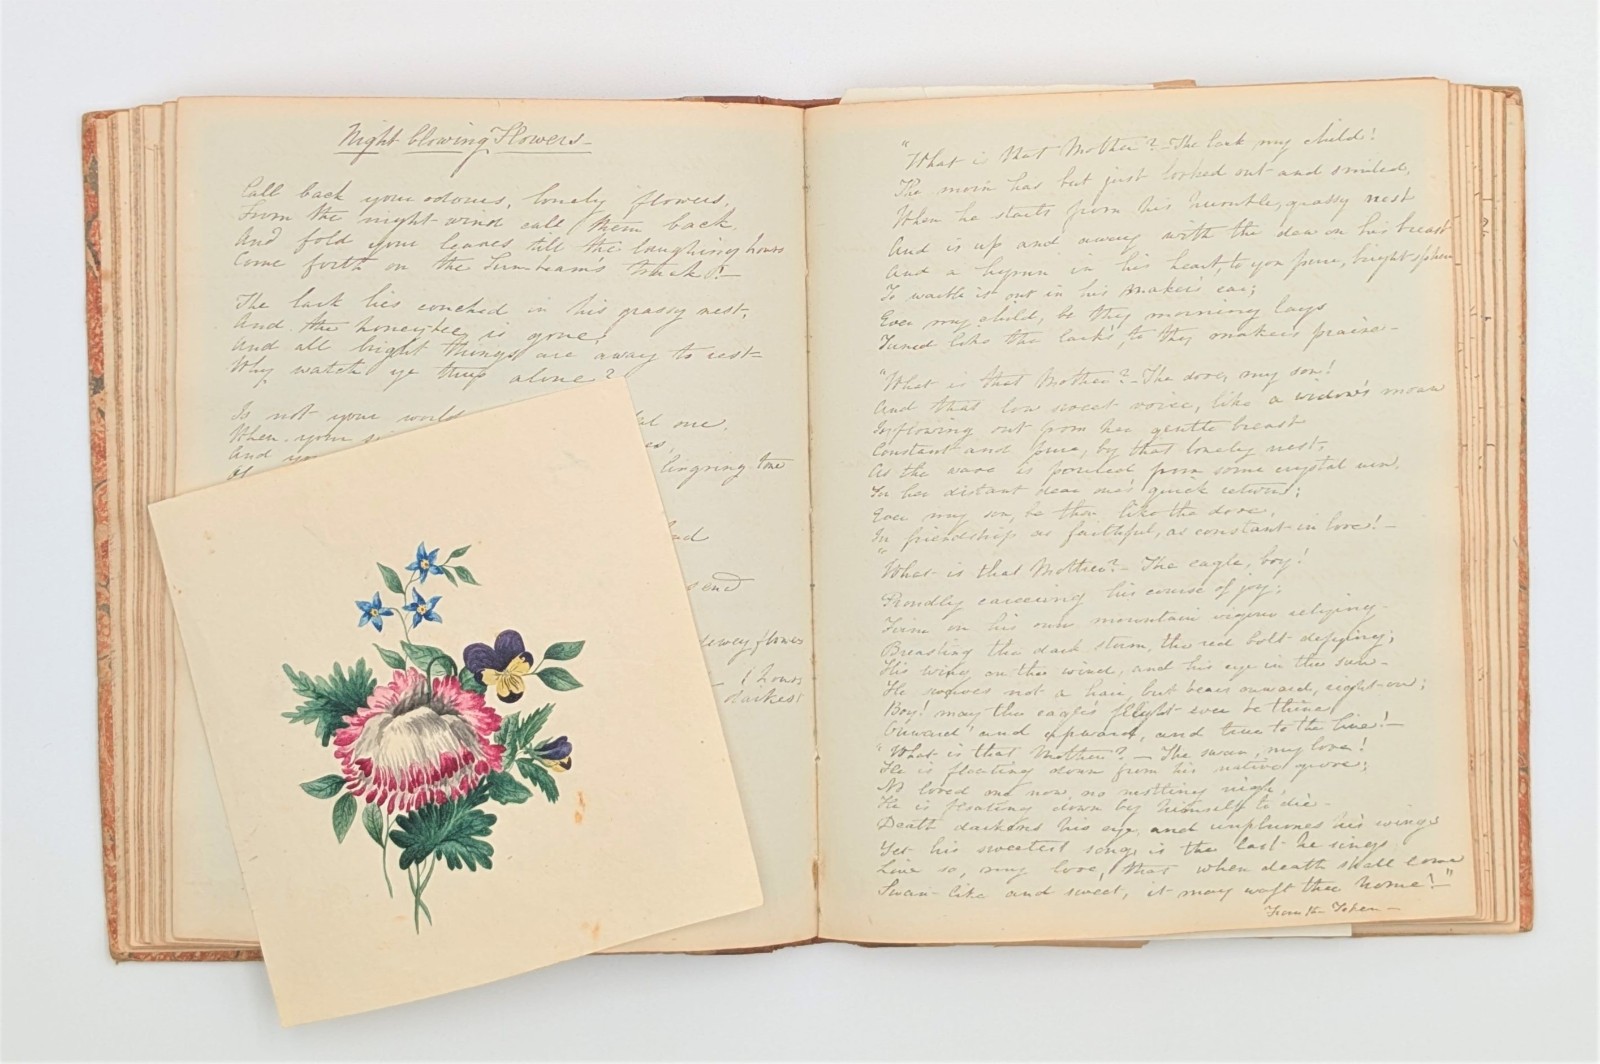 Night blowing Flowers –
Call back your odours, lonely flowers,
From the night-wind call them back
And fold your leaves till the laughing hours
Come forth on the Sun-beam's track!–
The lark lies couched in his grassy nest,
And the honeybee is gone,
And all bright things are away to rest–
Why watch ye thus alone?
Is not your world
When your
And
lingring tone
send
dewy flowers
hours
darkest
"What is that Mother? – The lark my child!
The morn has but just looked out and smiled,
When he starts from his humble, grassy nest
And is up and away with the dew on his breast
And a hymn in his heart, to yon pure, bright sphere
To warble it out in his Maker's ear;
Ever my child, be thy morning lays
Tuned like the lark's, to thy maker's praise –
"What is that Mother? – The dove, my son!
And that low sweet voice, like a widow's moan
Is flowing out from her gentle breast
Constant and pure, by that lonely nest,
As the wave is poured from some crystal urn,
For her distant dear one's quick return;
Ever my son, be thou like the dove,
In friendship as faithful, as constant in love! –
"What is that Mother? – The eagle, boy!
Proudly careering his course of joy;
Firm on his own mountain vigour relying –
Breasting the dark storm, the red bolt defying;
His wing on the wind, and his eye in the sun –
He swerves not a hair, but bears onward, right on;
Boy! may the eagle's flight ever be thine
Onward and upward, and true to the line! –
"What is that Mother? – The swan, my love!
He is floating down from his native grove;
No loved one now, no nestling nigh,
He is floating down by himself to die –
Death darkens his eye, and unplumes his wings
Yet his sweetest song, is the last he sings
Live so, my love, that when death shall come
Swan-like and sweet, it may waft thee home!–"
From the Token –